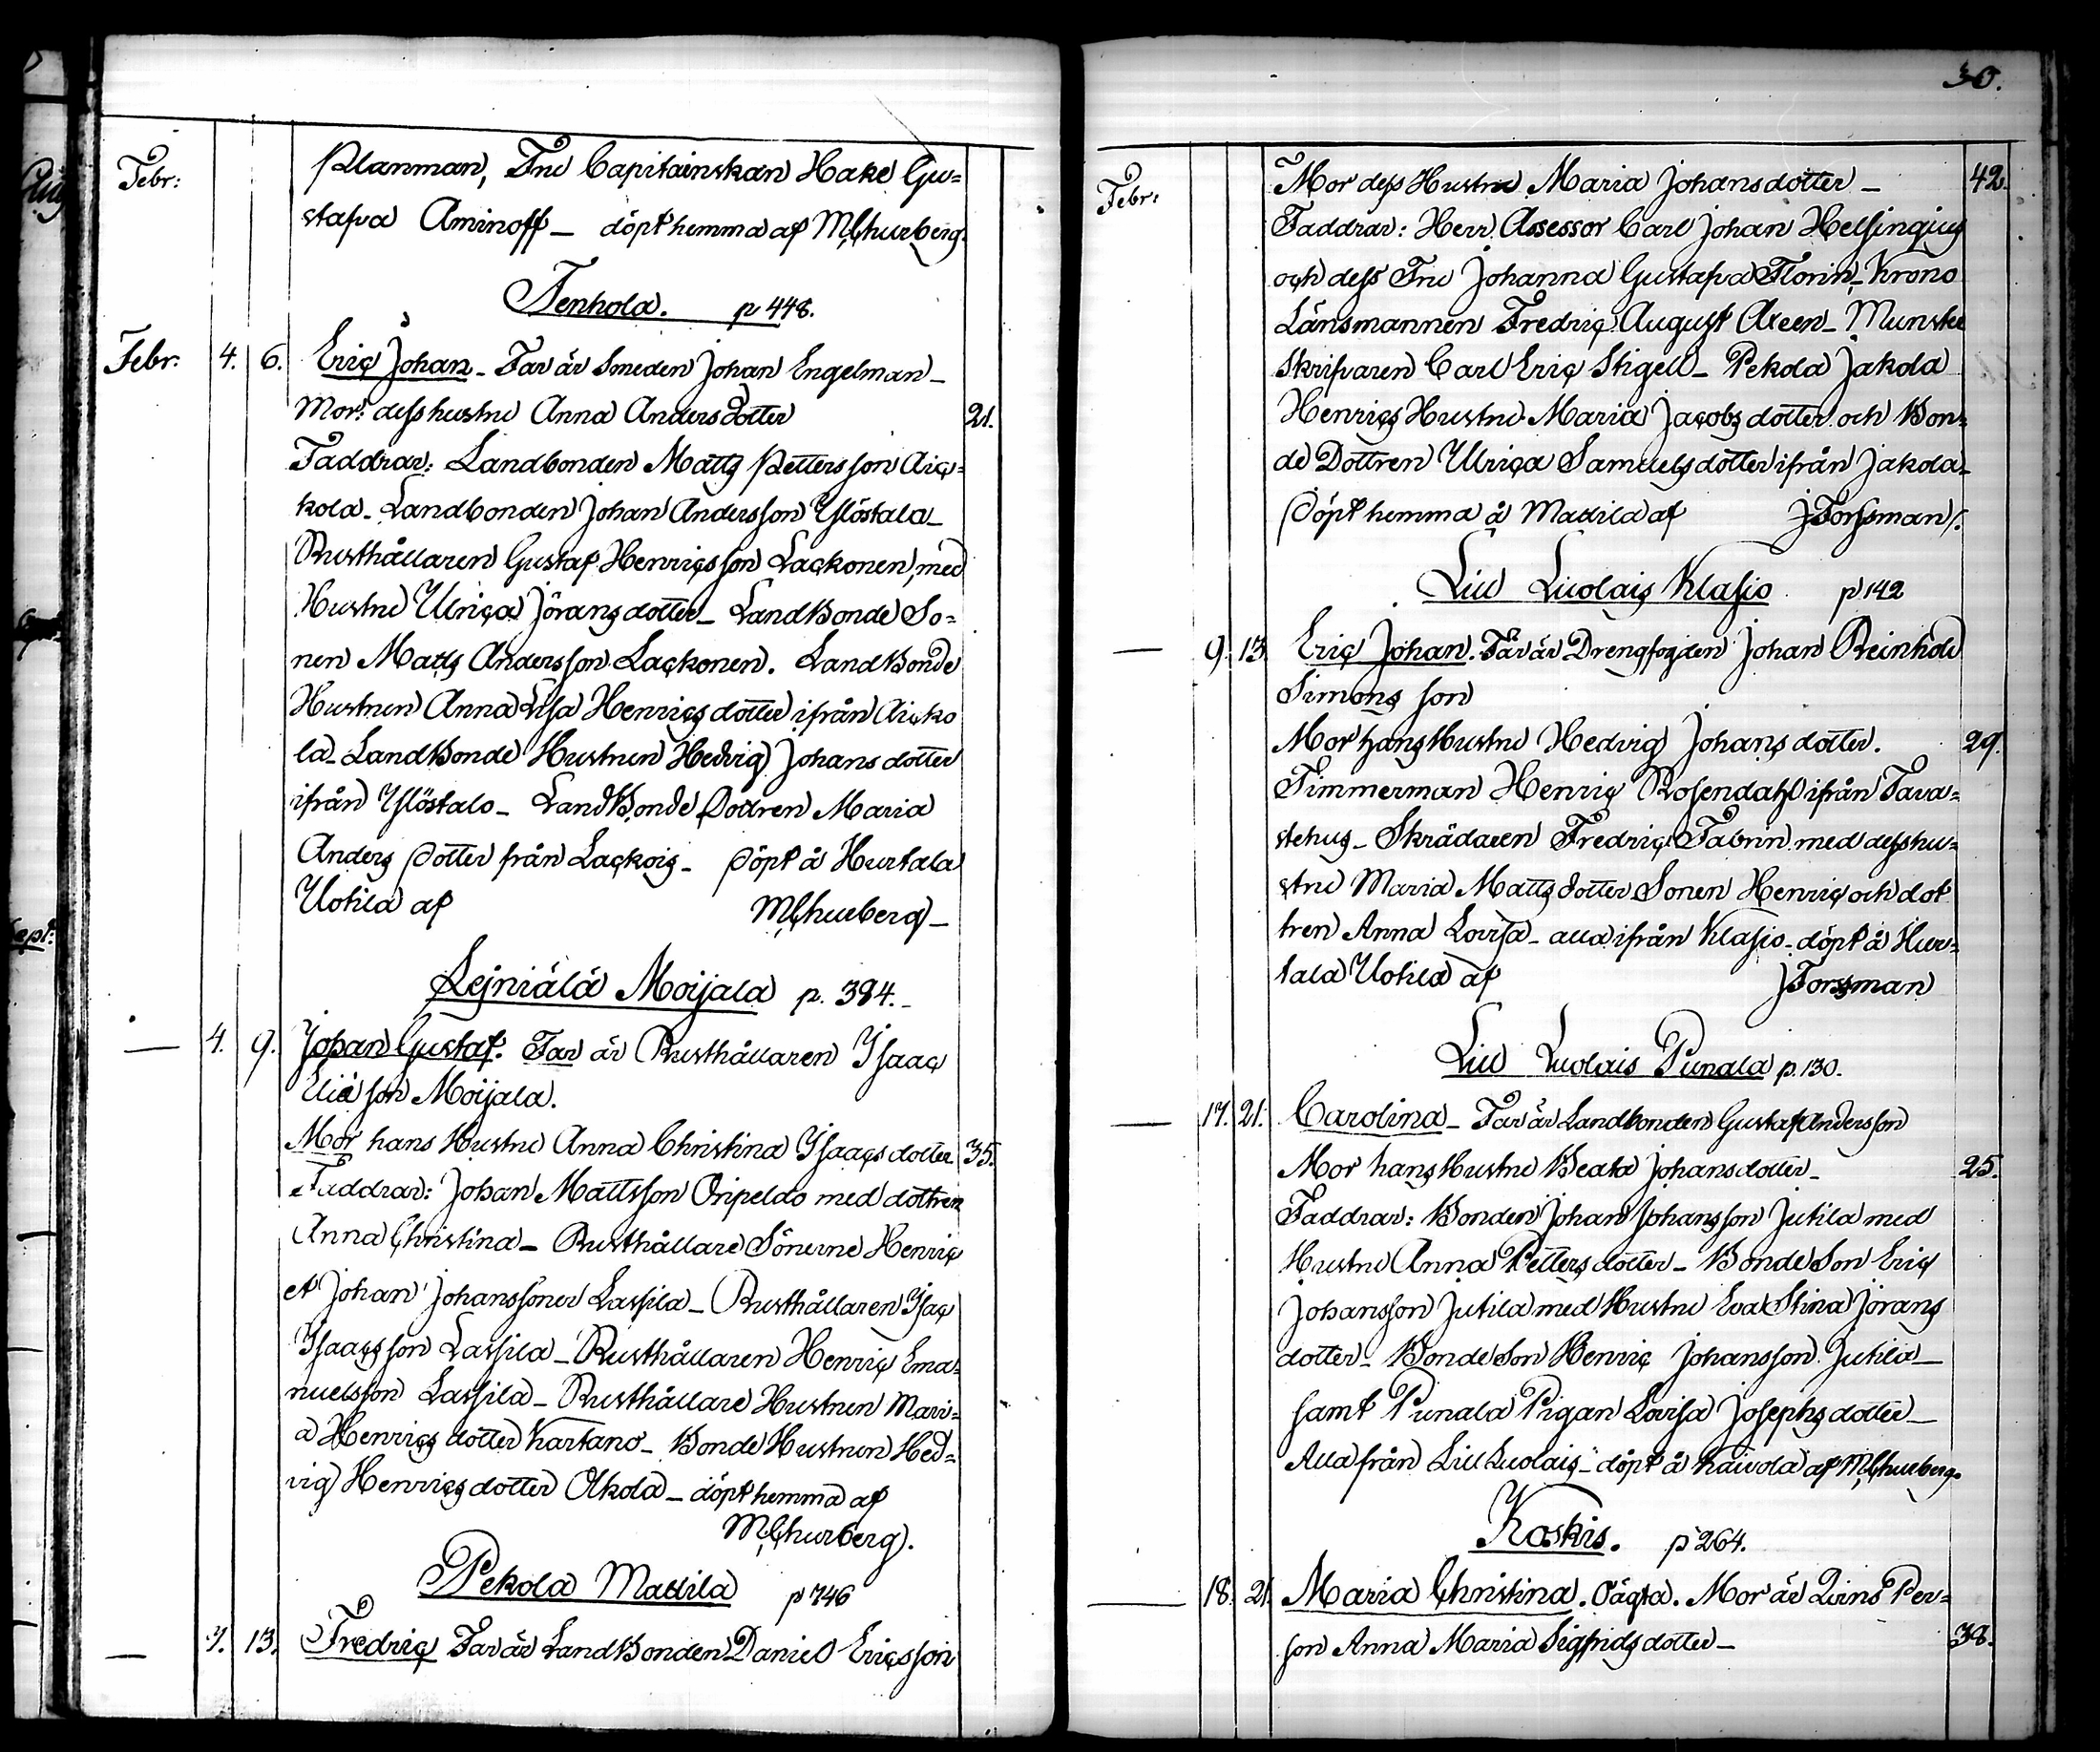 Febr:
Planman, Fru Capitainskan Hake Gu=
stafva Aminoff _ döpt hemma af M. Churberg.
Tenhola. p 448.
Febr. 4. 6. Eric Johan _ Far är Smeden Johan Engelman _
Mor: dess hustru Anna Anders dotter 21.
Faddrar: Landbonden Matts Petters son Aic=
kola _ Landbonden Johan Andersson Ylöstala _
Rusthållaren Gustaf Henrics son Lackonen, med
Hustru Ulrica Jörans dotter _ LandBonde So=
nen Matts Andersson Lackonen. LandBonde
Hustrun Anna Lisa Henrics dotter ifrån Aicko
la _ LandBonde Hustrun Hedvig Johans dotter
ifrån Ylöstalo _ LandBonde Dottren Maria
Anders Dotter från Lackois _ Döpt å Hurtala
Uotila af M. Churberg _
Lejniälä Moijala p. 384. _
— 4. 9. Johan Gustaf. Far är Rusthållaren Isaac
Elië son Moijala.
Mor hans Hustru Anna Christina Isaacs dotter 35.
Faddrar: Johan Mattsson Oripeldo med dottren
Anna Christina _ Rusthållare Sönerne Henric
et Johan Johanssöner Lassila _ Rusthållaren Isac
Isaacs son Lassila _ Rusthållaren Henric Ema=
nuelsson Lassila _ Rusthållare Hustrun Mari=
a Henrics dotter Kartano _ Bonde Hustrun Hed=
vig Henrics dotter Okola _ döpt hemma af
M. Churberg.
Pekola Mattila p 746
— 7. 13. Fredric Far är LandBonden Daniel Ericsson
30.
Febr:
Mor dess Hustru Maria Johansdotter _ 42.
Faddrar: Herr Assessor Carl Johan Helsingius
och dess Fru Johanna Gustafva Florin _ Krono
Länsmannen Fredric August Aeen _ Munster
skrifvaren Carl Eric Stigell _ Pekola Jakola
Henrics Hustru Maria Jacobs dotter och Bon=
de Dottren Ulrica Samuels dotter ifrån Jakola _
Döpt hemma å Mattila af J Forssman /.
Lill Luolais Klasio p 142
— 9. 13. Eric Johan. Far är Drengfogden Johan Reinhold
Simons son
Mor hans Hustru Hedvig Johans dotter. 29.
Timmerman Henric Rosendahl ifrån Tava=
stehus _ Skrädaren Fredric Fabrin med dess hu=
stru Maria Matts dotter Sonen Henric och dot
tren Anna Lovisa _ alla ifrån Klasio _ döpt å Hur=
tala Uotila af J Forssman
Lill Luolais Punala p. 130.
— 17. 21. Carolina _ Far är Landbonden Gustaf Andersson
Mor hans Hustru Beata Johansdotter _ 25.
Faddrar: Bonden Johan Johansson Jutila med
Hustru Anna Petters dotter _ Bonde Son Eric
Johansson Jutila med Hustru Eva Stina Jörans
dotter _ Bonde Son Henric Johansson Jutila _
samt Punala Pigan Lovisa Josephs dotter _
Alla från Lill Luolais _ döpt å Kaivola af M. Churberg.
Koskis. p 264.
— 18. 21. Maria Christina. Oäqta. Mor är Qvins Per=
son Anna Maria Sigfrids dotter _ 38.